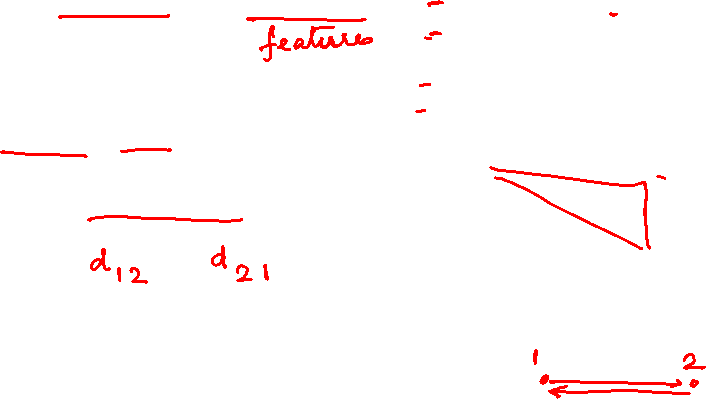 features
d12 d21
1 2